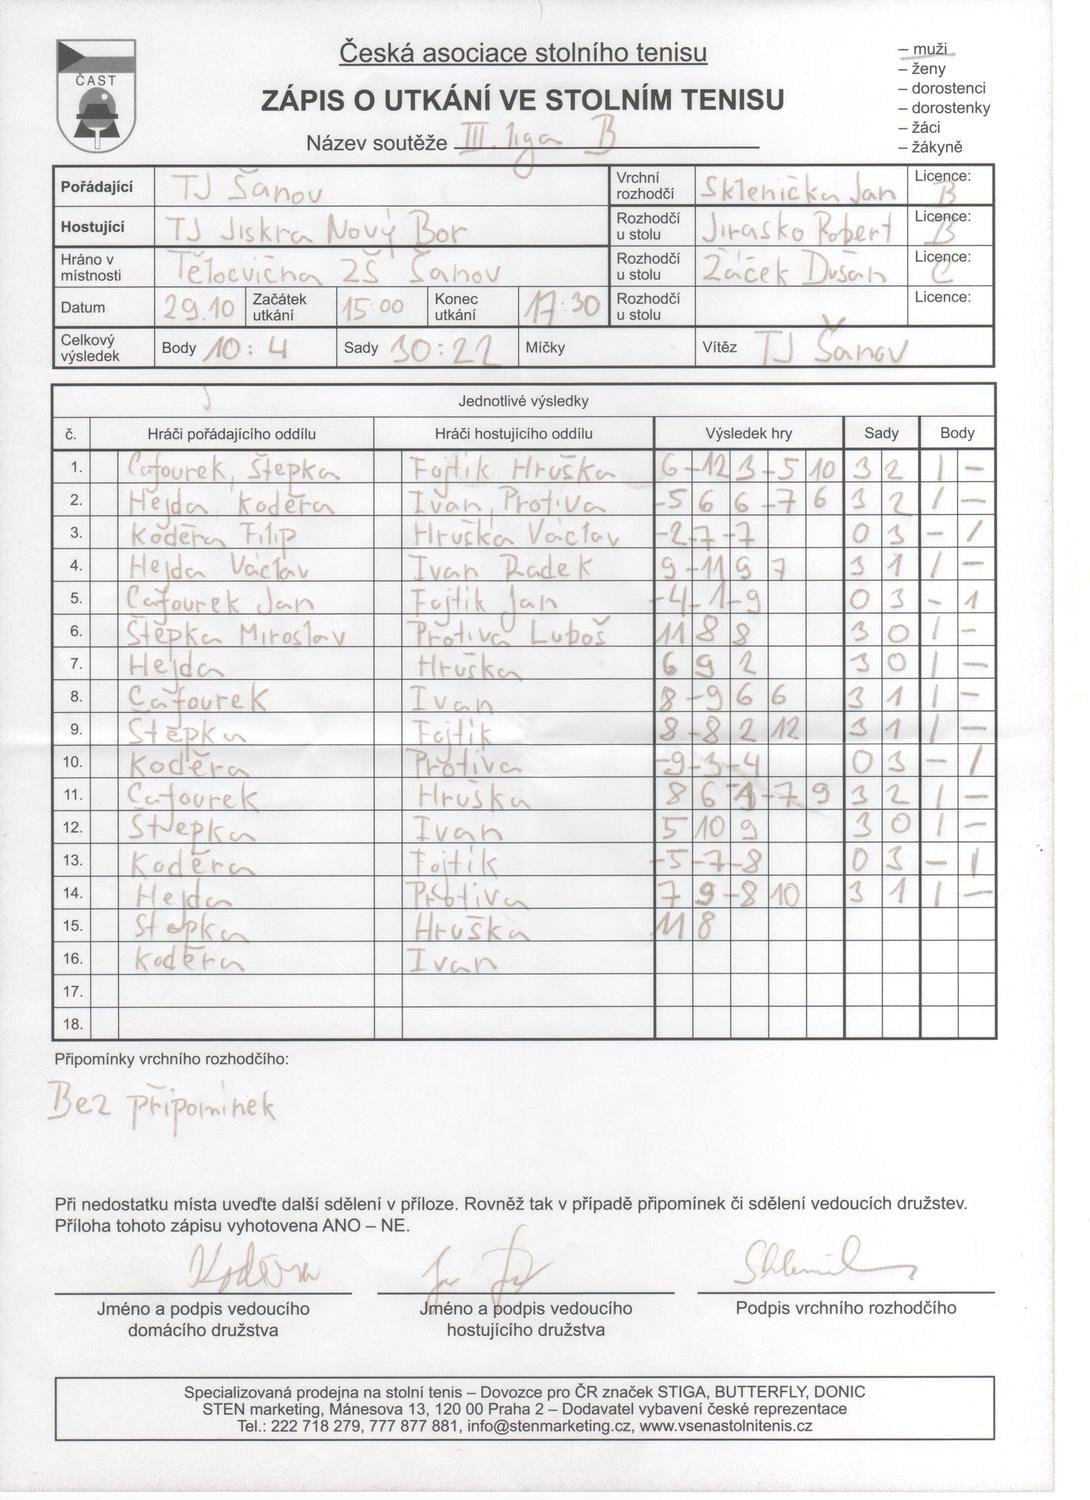 ČAST
Česká asociace stolního tenisu
ZÁPIS O UTKÁNÍ VE STOLNÍM TENISU
Název soutěže III. liga B
– muži
– ženy
– dorostenci
– dorostenky
– žáci
– žákyně
Pořádající TJ Šanov Vrchní rozhodčí Sklenička Jan Licence: B
Hostující TJ Jiskra Nový Bor Rozhodčí u stolu Jirasko Robert Licence: B
Hráno v místnosti Tělocvična ZŠ Šanov Rozhodčí u stolu Žáček Dušan Licence: C
Datum 29.10 Začátek utkání 15:00 Konec utkání 17:30 Rozhodčí u stolu Licence:
Celkový výsledek Body 10:4 Sady 30:22 Míčky Vítěz TJ Šanov
Jednotlivé výsledky
č. Hráči pořádajícího oddílu Hráči hostujícího oddílu Výsledek hry Sady Body
1. Cafourek, Štěpka Fojtík Hruška 6 -12 3 -5 10 3 2 1 –
2. Hejda Koděra Ivan, Protiva -5 6 6 -7 6 3 2 1 –
3. Koděra Filip Hruška Václav -2 -7 -7 0 3 – 1
4. Hejda Václav Ivan Radek 9 -11 9 7 3 1 1 –
5. Cafourek Jan Fojtík Jan -4 -1 -9 0 3 – 1
6. Štěpka Miroslav Protiva Luboš 11 8 8 3 0 1 –
7. Hejda Hruška 6 9 2 3 0 1 –
8. Cafourek Ivan 8 -9 6 6 3 1 1 –
9. Štěpka Fojtík 8 -8 2 12 3 1 1 –
10. Koděra Protiva -9 -3 -4 0 3 – 1
11. Cafourek Hruška 8 6 -9 -7 9 3 2 1 –
12. Štěpka Ivan 5 10 9 3 0 1 –
13. Koděra Fojtík -5 -7 -8 0 3 – 1
14. Hejda Protiva 7 9 -8 10 3 1 1 –
15. Štěpka Hruška 11 8
16. Koděra Ivan
17.
18.
Připomínky vrchního rozhodčího:
Bez připomínek
Při nedostatku místa uveďte další sdělení v příloze. Rovněž tak v případě připomínek či sdělení vedoucích družstev.
Příloha tohoto zápisu vyhotovena ANO – NE.
Koděra
Jméno a podpis vedoucího Jméno a podpis vedoucího Podpis vrchního rozhodčího
domácího družstva hostujícího družstva
Specializovaná prodejna na stolní tenis – Dovozce pro ČR značek STIGA, BUTTERFLY, DONIC
STEN marketing, Mánesova 13, 120 00 Praha 2 – Dodavatel vybavení české reprezentace
Tel.: 222 718 279, 777 877 881, info@stenmarketing.cz, www.vsenastolnitenis.cz